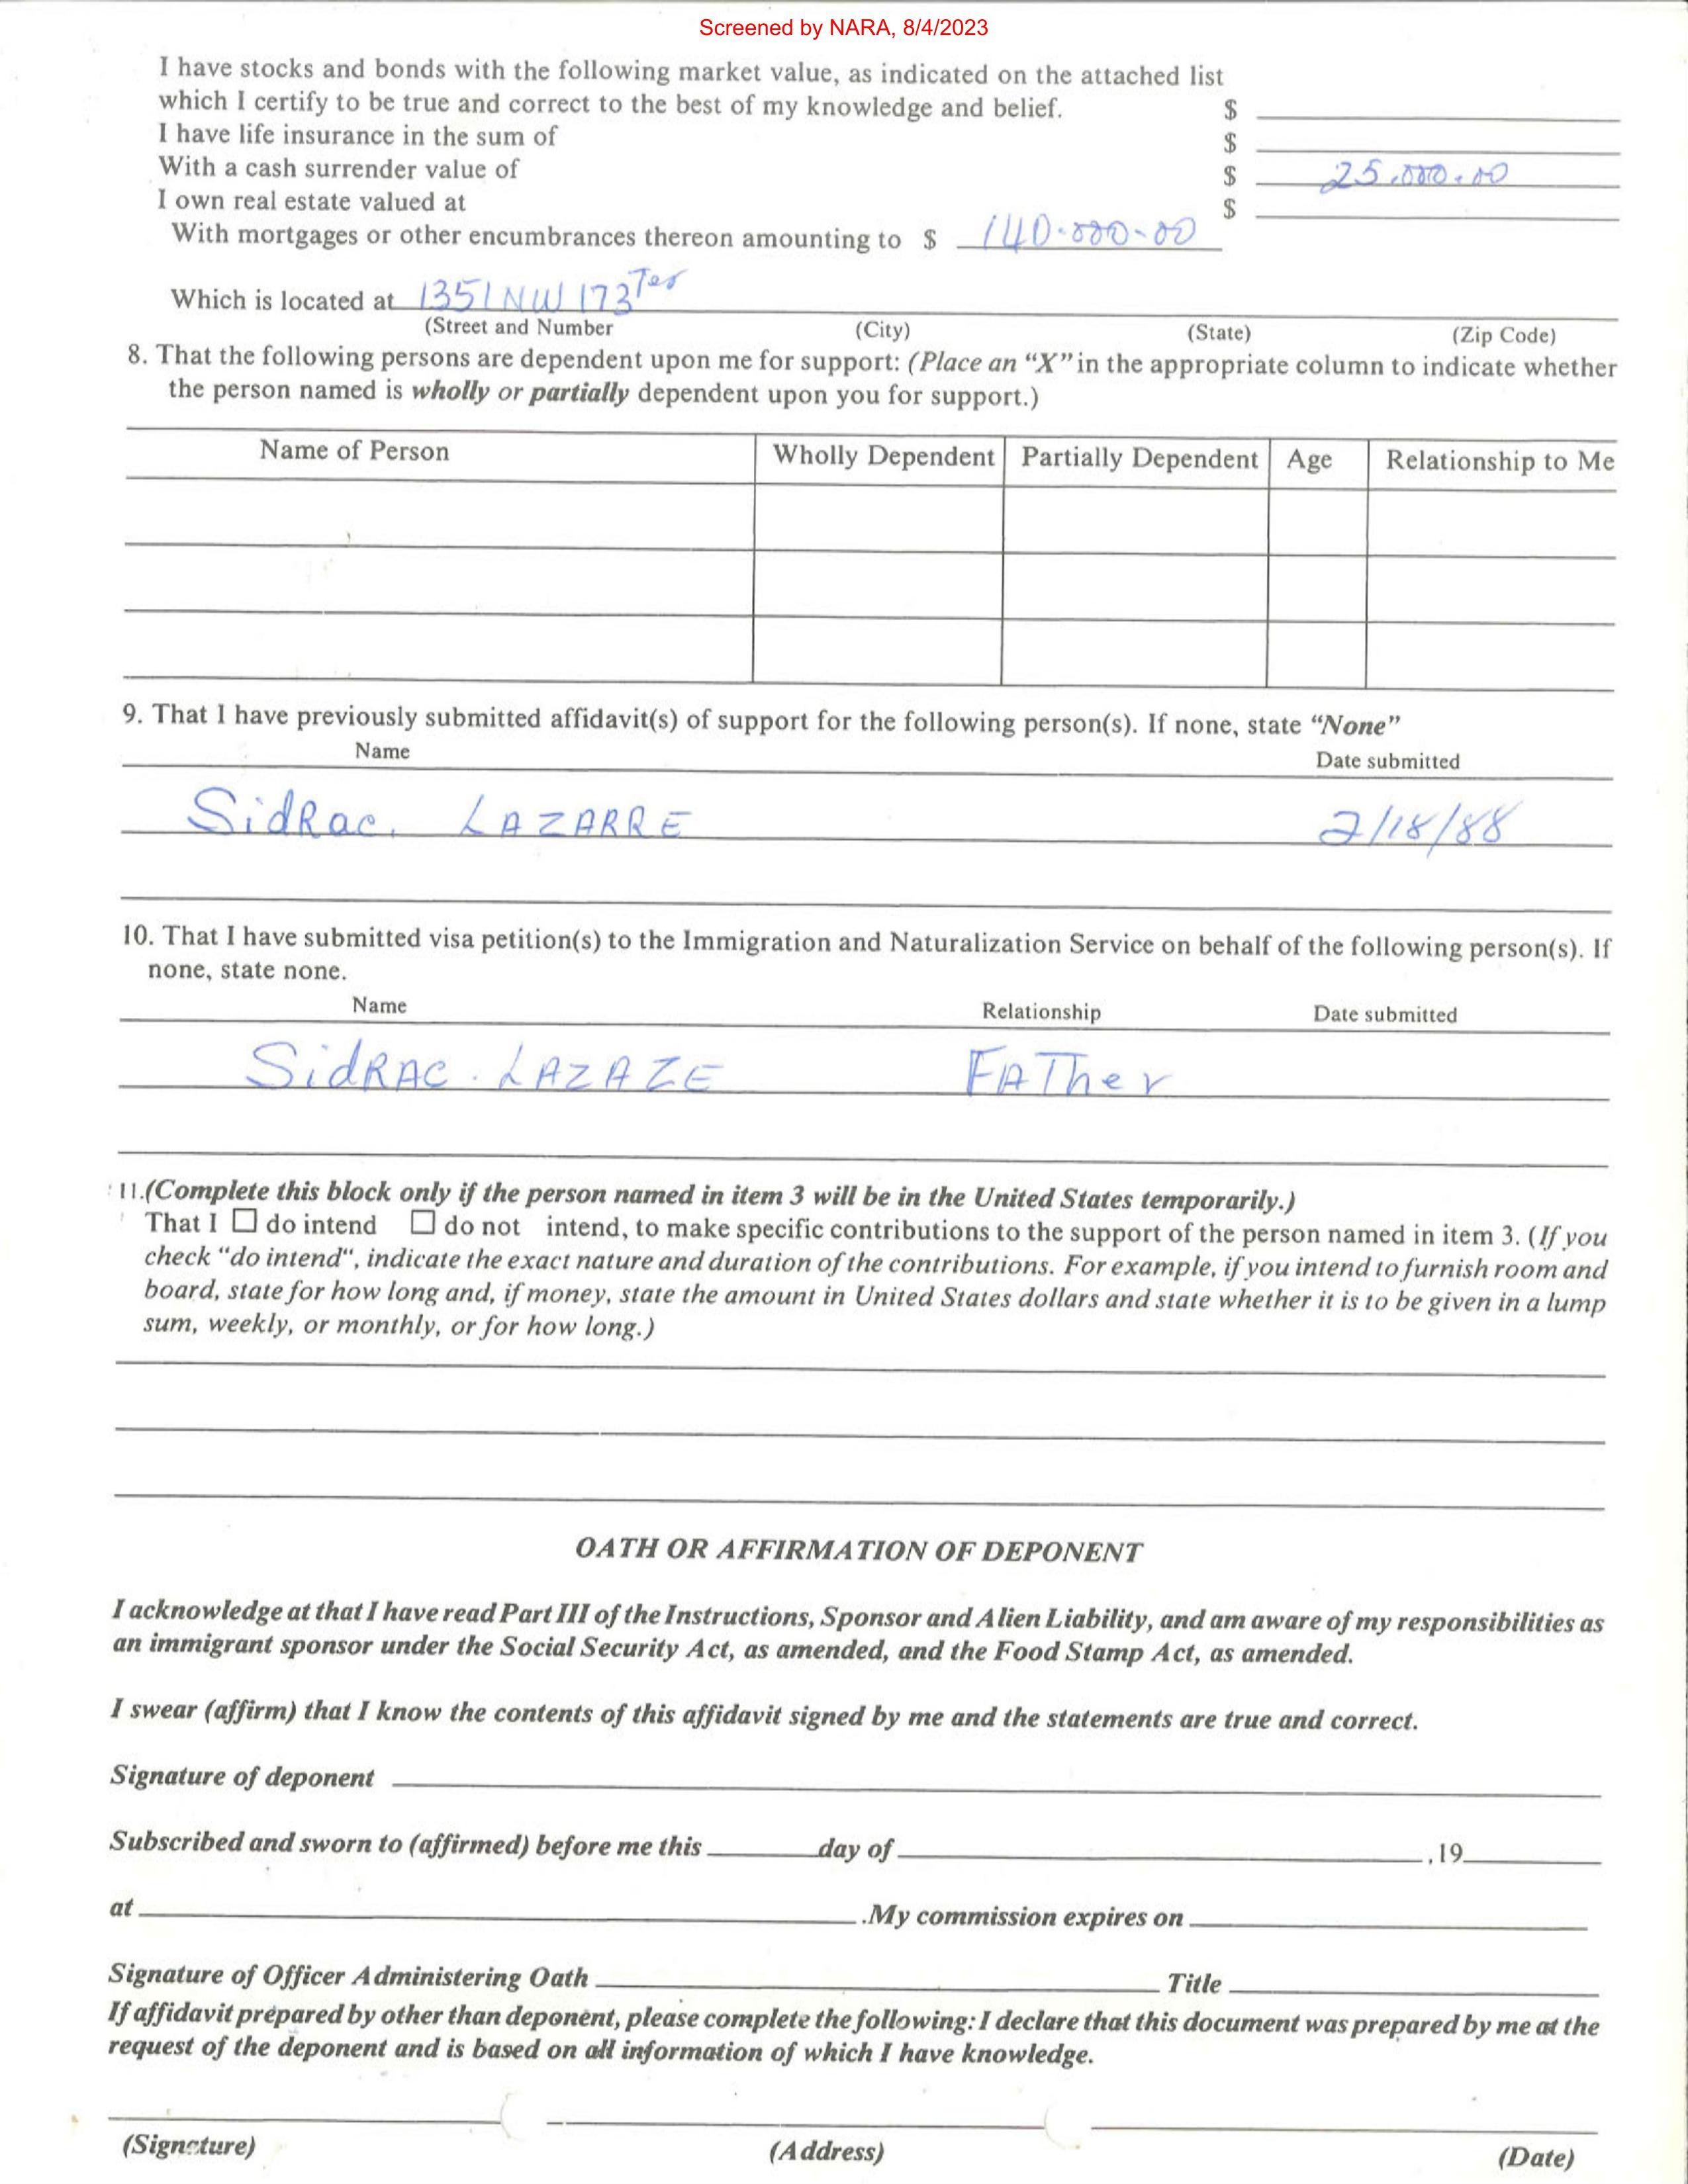 Screened by NARA, 8/4/2023
I have stocks and bonds with the following market value, as indicated on the attached list
which I certify to be true and correct to the best of my knowledge and belief. $
I have life insurance in the sum of $
With a cash surrender value of $ 25.000.00
I own real estate valued at $
With mortgages or other encumbrances thereon amounting to $ 140.000.00
Which is located at 1351 NW 173 Ter
(Street and Number (City) (State) (Zip Code)
8. That the following persons are dependent upon me for support: (Place an “X” in the appropriate column to indicate whether
the person named is wholly or partially dependent upon you for support.)
Name of Person Wholly Dependent Partially Dependent Age Relationship to Me
9. That I have previously submitted affidavit(s) of support for the following person(s). If none, state “None”
Name Date submitted
SidRac. LAZARRE 2/18/88
10. That I have submitted visa petition(s) to the Immigration and Naturalization Service on behalf of the following person(s). If
none, state none.
Name Relationship Date submitted
SidRAC. LAZAZE FATher
11.(Complete this block only if the person named in item 3 will be in the United States temporarily.)
That I ☐ do intend ☐ do not intend, to make specific contributions to the support of the person named in item 3. (If you
check “do intend“, indicate the exact nature and duration of the contributions. For example, if you intend to furnish room and
board, state for how long and, if money, state the amount in United States dollars and state whether it is to be given in a lump
sum, weekly, or monthly, or for how long.)
OATH OR AFFIRMATION OF DEPONENT
I acknowledge at that I have read Part III of the Instructions, Sponsor and Alien Liability, and am aware of my responsibilities as
an immigrant sponsor under the Social Security Act, as amended, and the Food Stamp Act, as amended.
I swear (affirm) that I know the contents of this affidavit signed by me and the statements are true and correct.
Signature of deponent
Subscribed and sworn to (affirmed) before me this day of ,19
at .My commission expires on
Signature of Officer Administering Oath Title
If affidavit prepared by other than deponent, please complete the following: I declare that this document was prepared by me at the
request of the deponent and is based on all information of which I have knowledge.
(Signature) (Address) (Date)